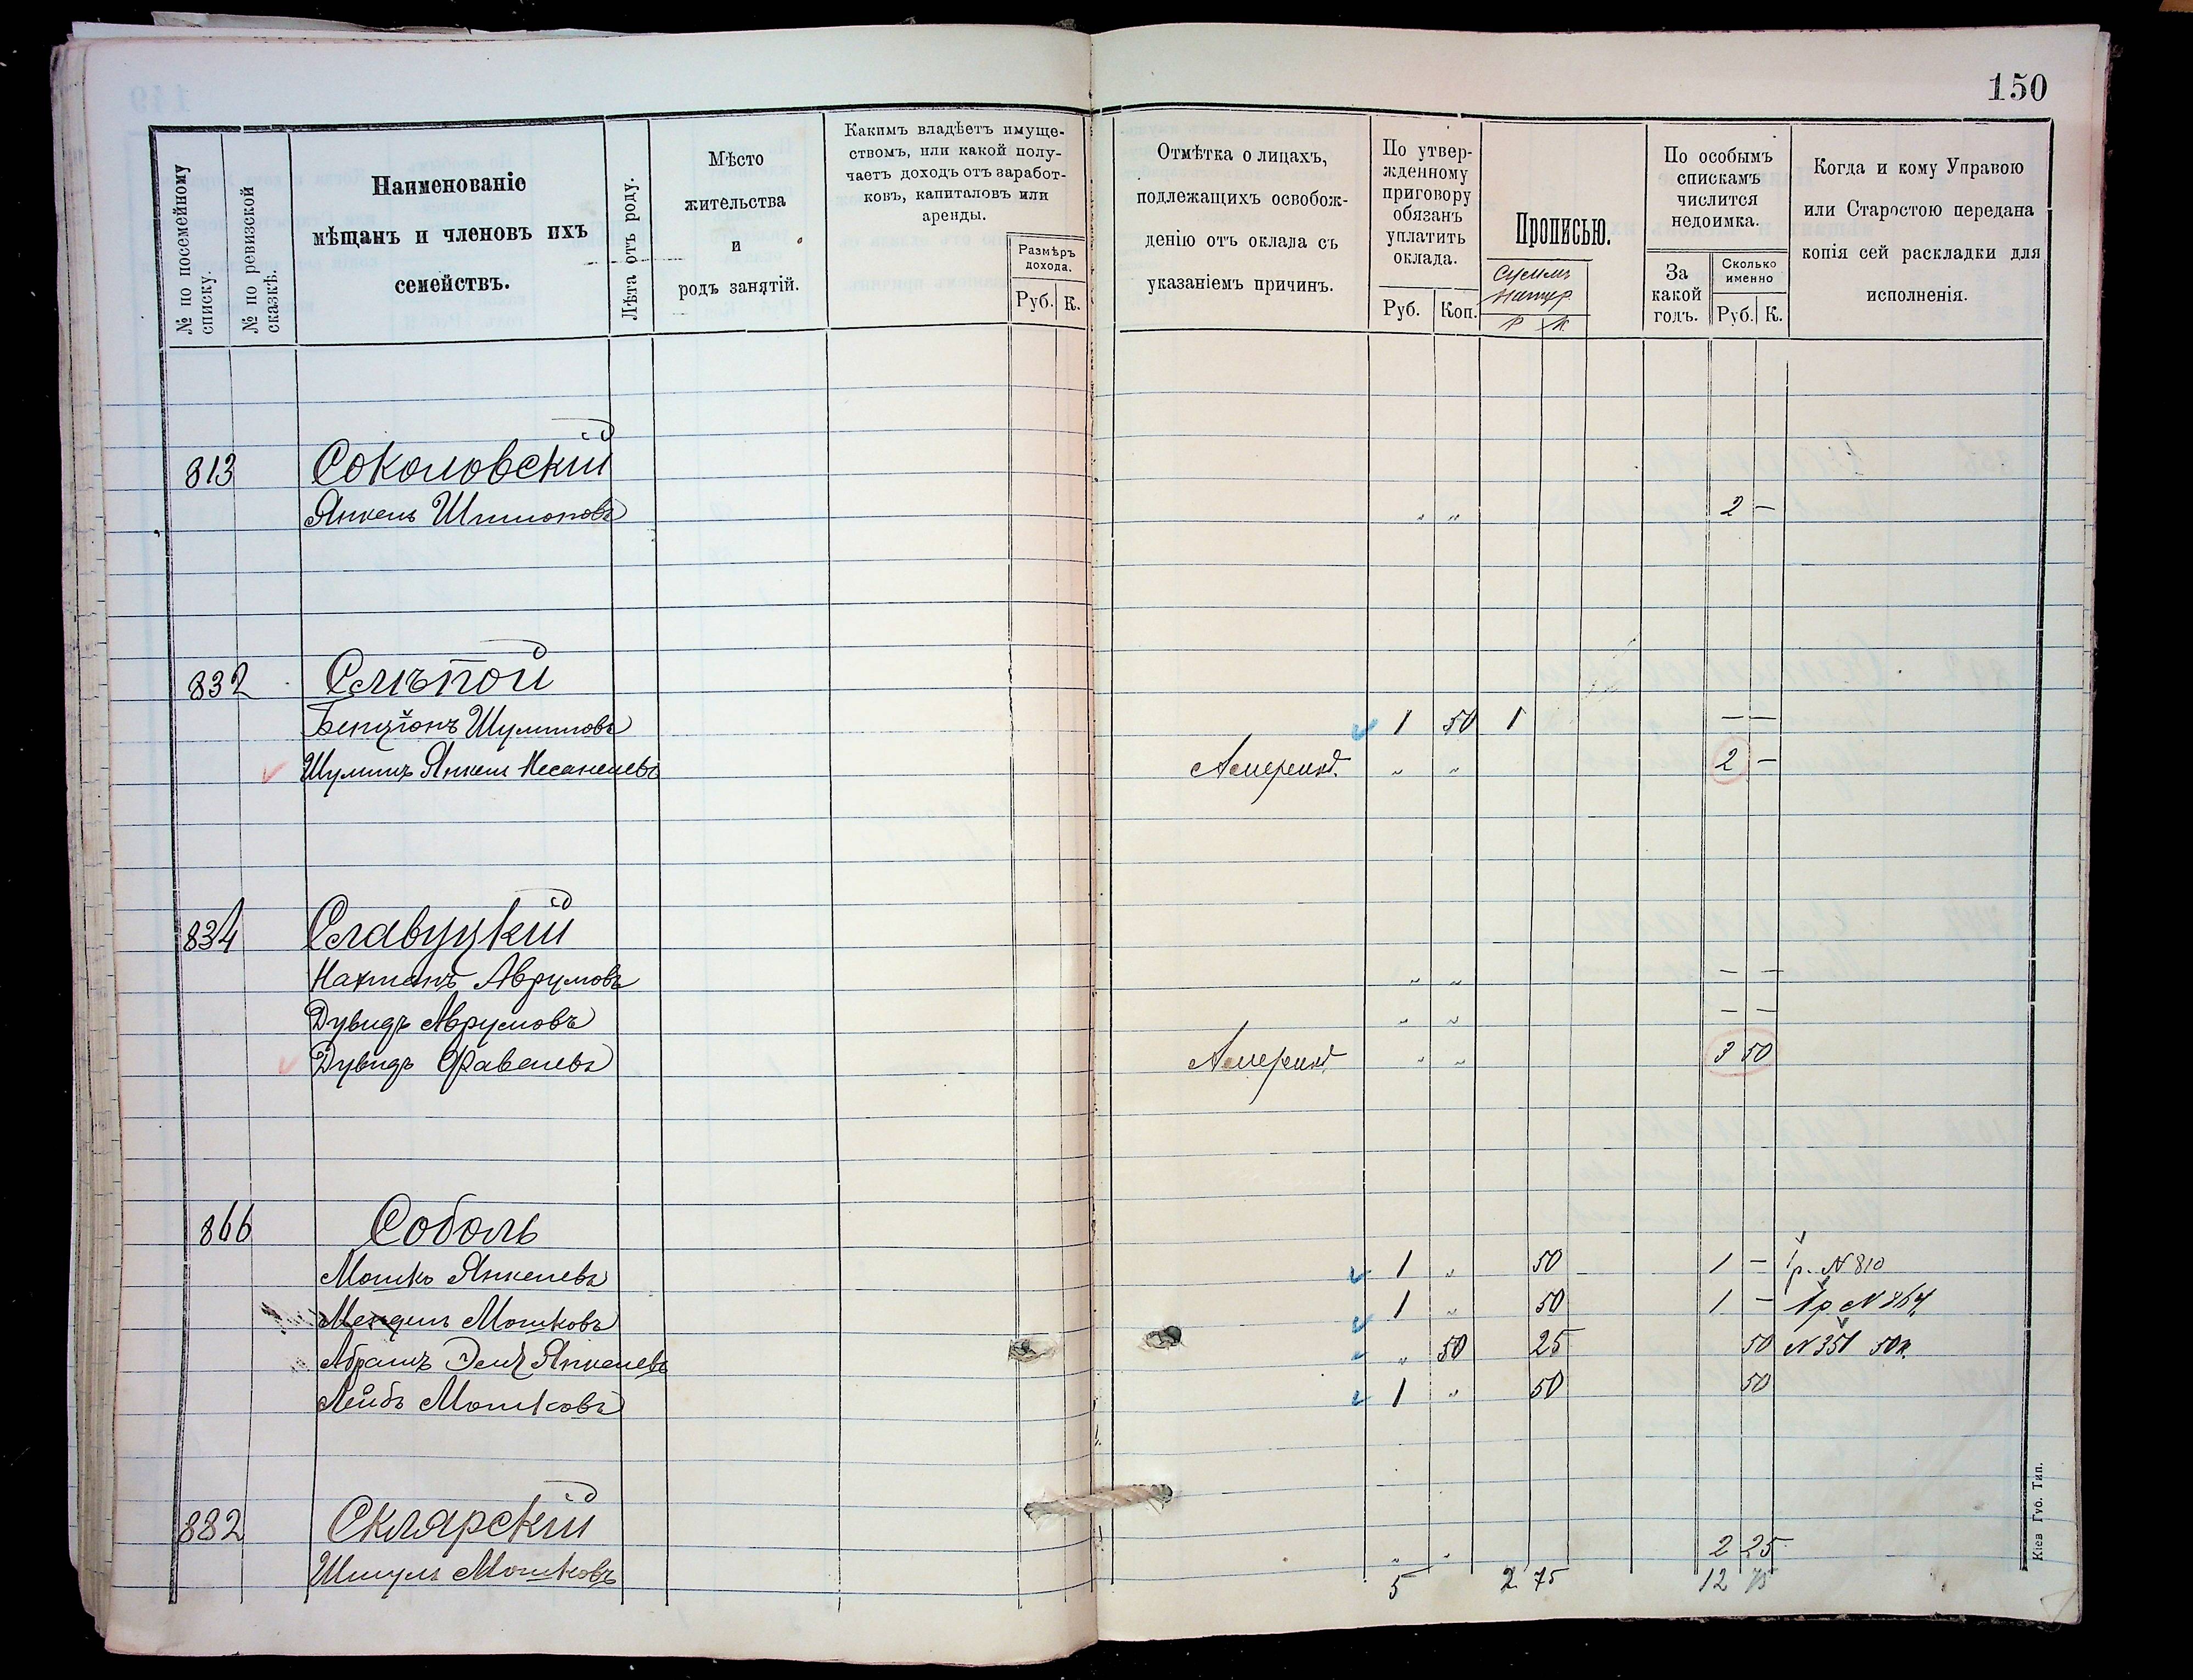 150
№ по посемейному списку.
№ по ревизской сказкѣ.
Наименованіе
мѣщанъ и членовъ ихъ
семействъ.
Лѣта отъ роду.
Мѣсто
жительства
и
родъ занятій.
Какимъ владѣетъ имуще-
ствомъ, или какой полу-
чаетъ доходъ отъ заработ-
ковъ, капиталовъ или
аренды.
Размѣръ
дохода.
Руб. К.
Отмѣтка о лицахъ,
подлежащихъ освобож-
денію отъ оклада съ
указаніемъ причинъ.
По утвер-
жденному
приговору
обязанъ
уплатить
оклада.
Руб. Коп.
Прописью.
Р К
По особымъ
спискамъ
числится
недоимка.
За
какой
годъ.
Сколько
именно
Руб. К.
Когда и кому Управою
или Старостою передана
копія сей раскладки для
исполненія.
813 Соколовскій
Янкель Шимоновъ " " 2 —
832 Слѣпой
Бенціонъ Шулимовъ 1 50 1 — —
Шулимъ Янкель Америк. " " 2 —
834 Славуцкій
Нахманъ Аврумовъ " " — —
Дувидъ Аврумовъ " " — —
Дувидъ Америк. " " 3 50
866 Соболь
Мошко Янкелевъ 1 " 50 1 — 1 р. N 810
Мендель Мошковъ 1 " 50 1 — 1 р. N 864
Абрамъ Янкелевъ " 50 25 50 N 351 50 к.
Лейбъ Мошковъ 1 " 50 50
882 Склярскій
Шмуль Мошковъ " " 2 25
5 2 75 12 75
Кіев Губ. Тип.